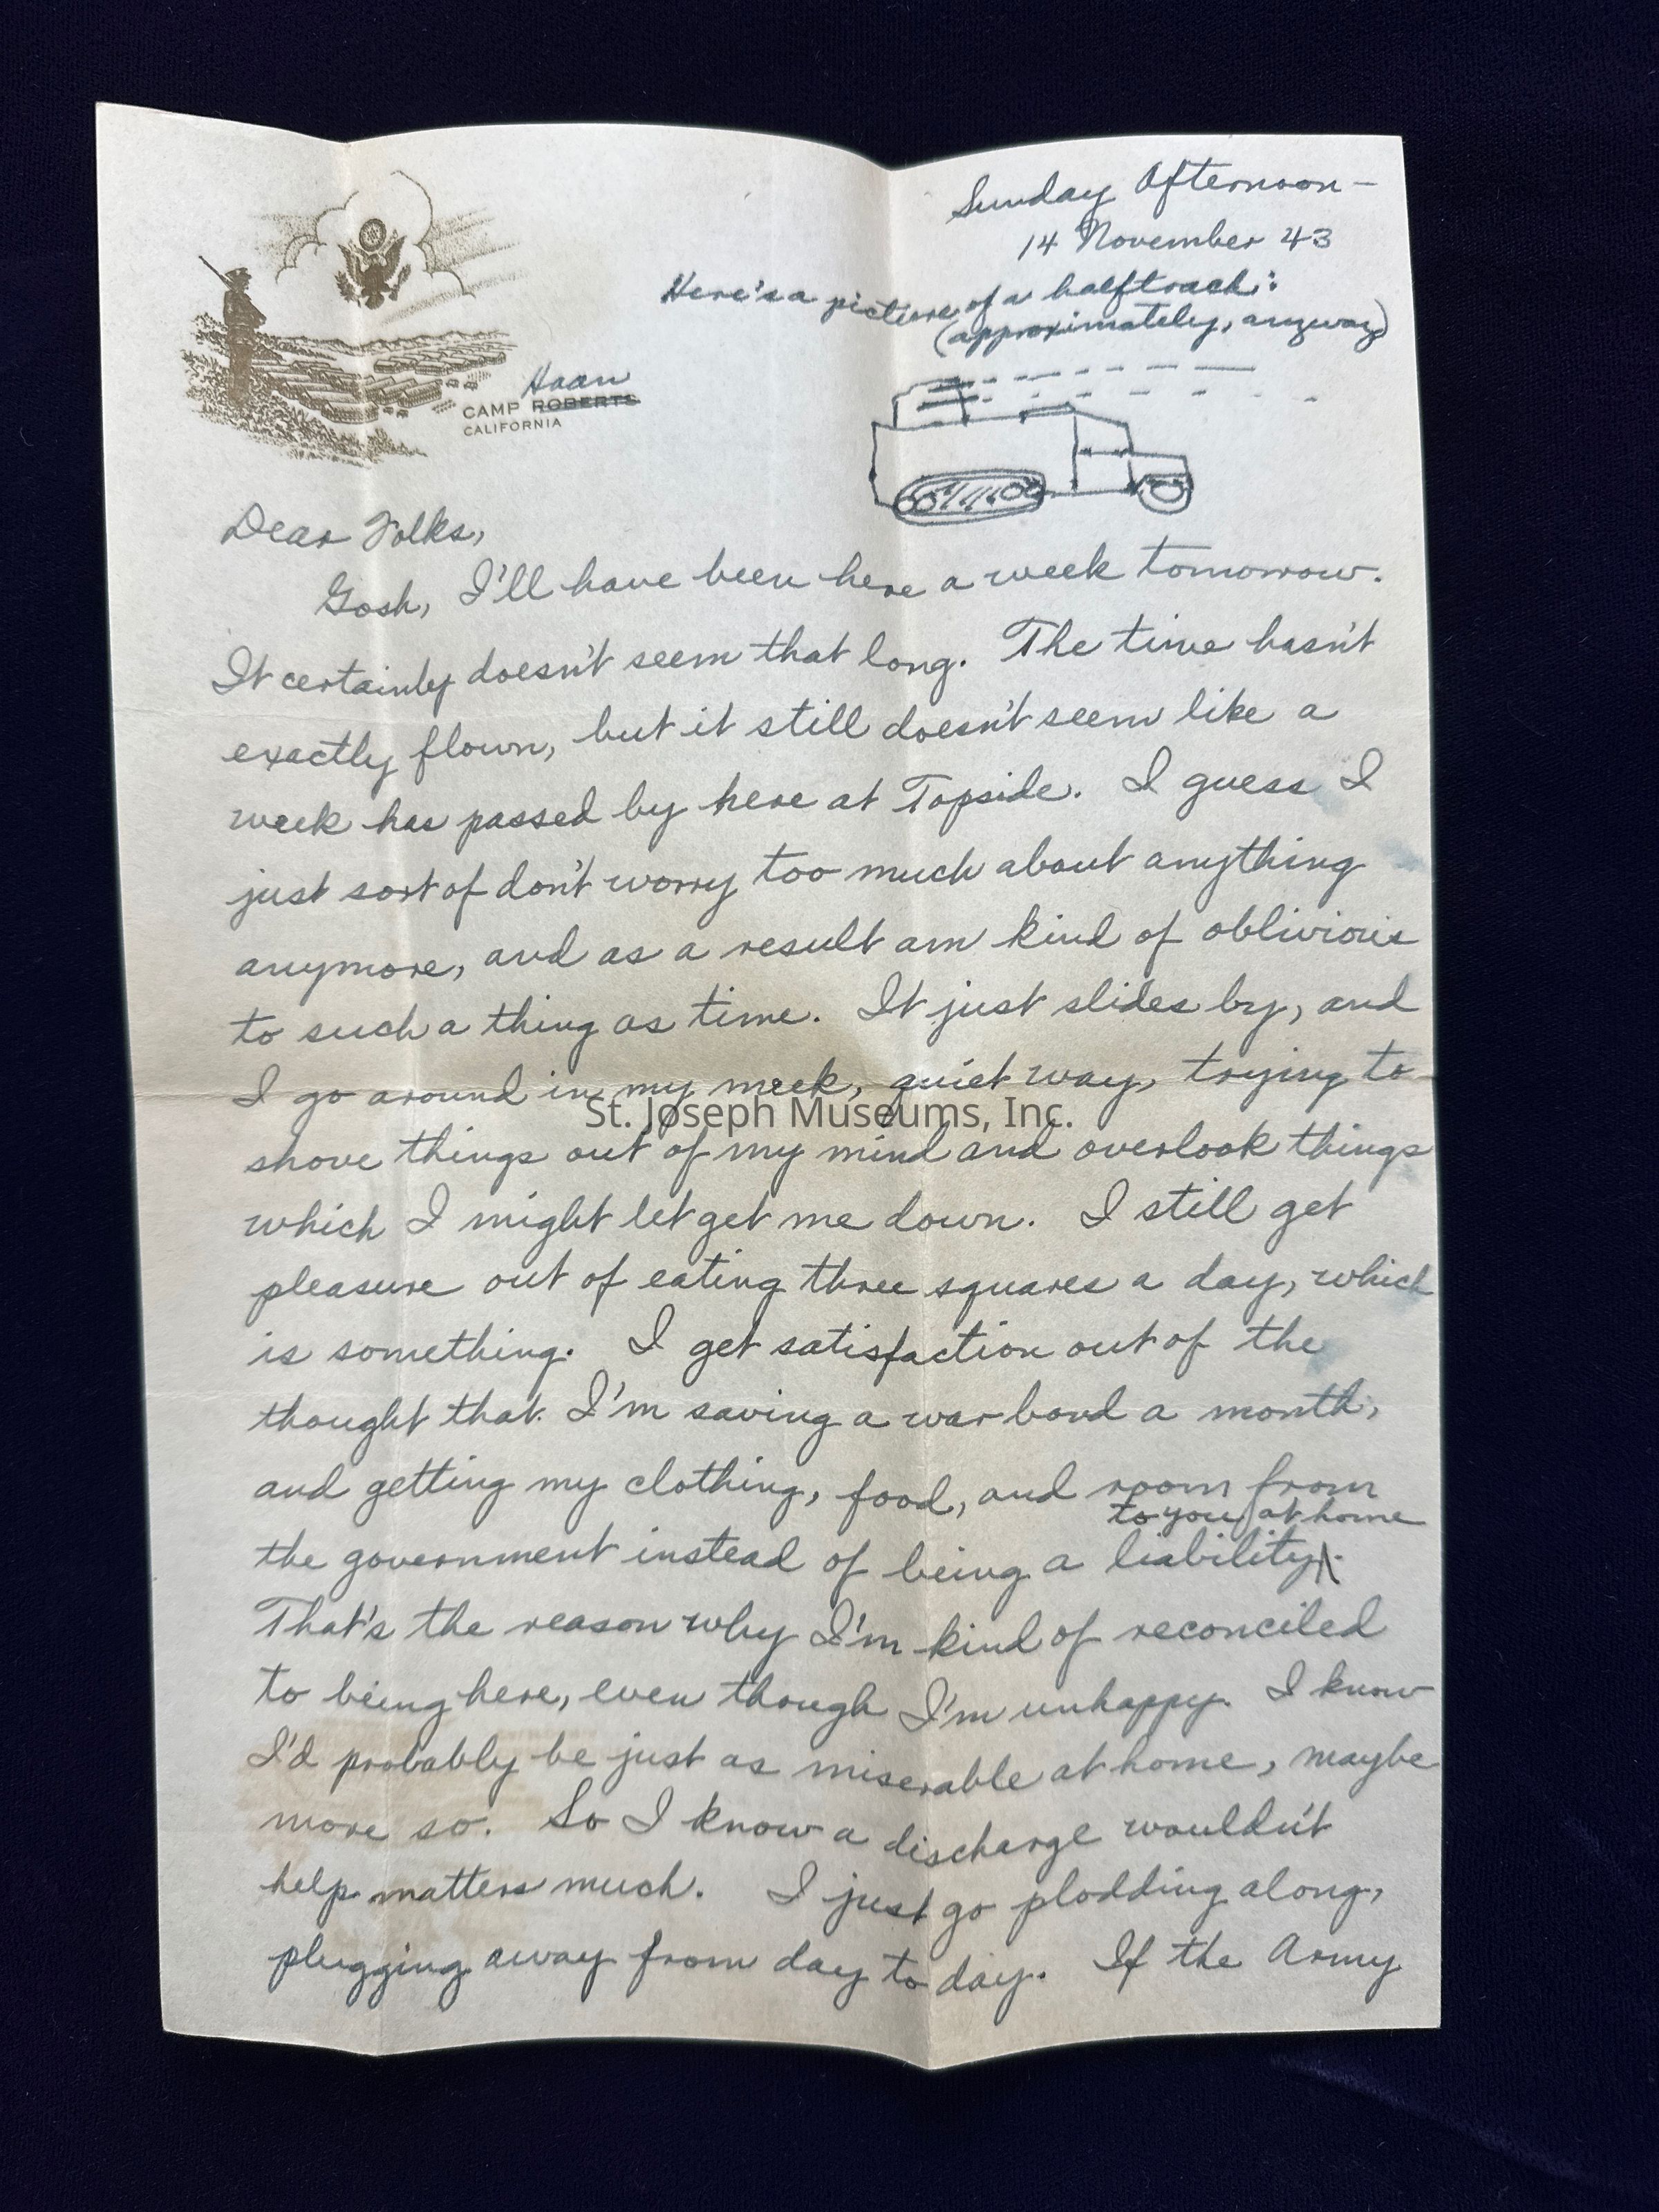 Sunday Afternoon —
14 November 43
Here's a picture of a halftrack:
(approximately, anyway)
Haan
CAMP ROBERTS
CALIFORNIA
Dear Folks,
Gosh, I'll have been here a week tomorrow.
It certainly doesn't seem that long. The time hasn't
exactly flown, but it still doesn't seem like a
week has passed by here at Topside. I guess I
just sort of don't worry too much about anything
anymore, and as a result am kind of oblivious
to such a thing as time. It just slides by, and
I go around in my meek, quiet way, trying to
St. Joseph Museums, Inc.
shove things out of my mind and overlook things
which I might let get me down. I still get
pleasure out of eating three squares a day, which
is something. I get satisfaction out of the
thought that I'm saving a war bond a month,
and getting my clothing, food, and room from
to you at home
the government instead of being a liability.
That's the reason why I'm kind of reconciled
to being here, even though I'm unhappy. I know
I'd probably be just as miserable at home, maybe
more so. So I know a discharge wouldn't
help matters much. I just go plodding along,
plugging away from day to day. If the Army